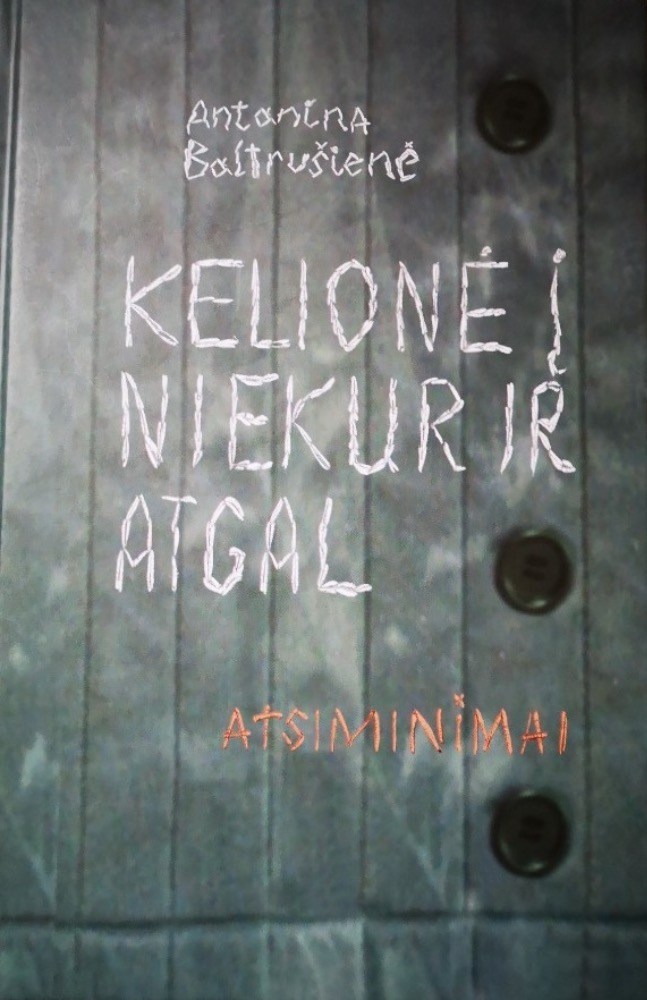 Antanina
Baltrušienė
KELIONĖ Į
NIEKUR IR
ATGAL
ATSIMINIMAI